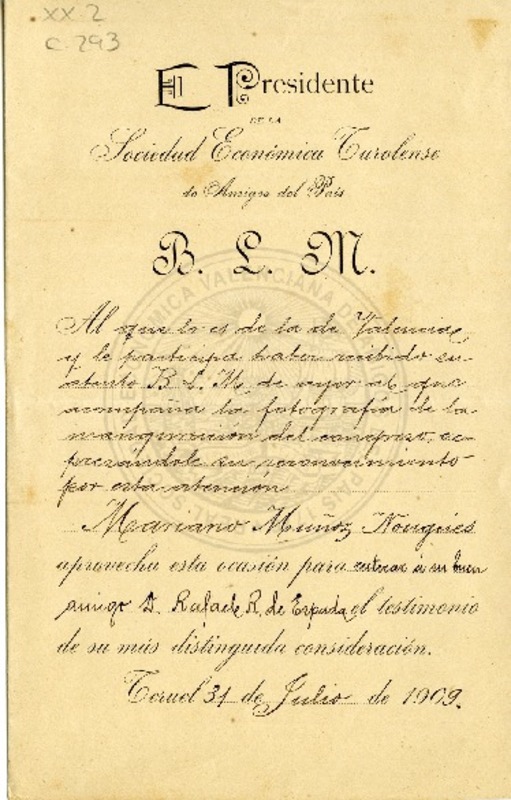 XX. 2
C. 293
El Presidente
DE LA
Sociedad Económica Turolense
de Amigos del País
B. L. M.
Al que lo es de la de Valencia
y le participa haber recibido su
atento B. L. M. de ayer al que
acompaña la fotografía de la
inauguración del congreso, ex-
presándole su reconocimiento
por esta atención
Mariano Muñoz Nougués
aprovecha esta ocasión para reiterar á su buen
amigo D. Rafael R. de Espada el testimonio
de su más distinguida consideración.
Teruel 31 de Julio de 1909.